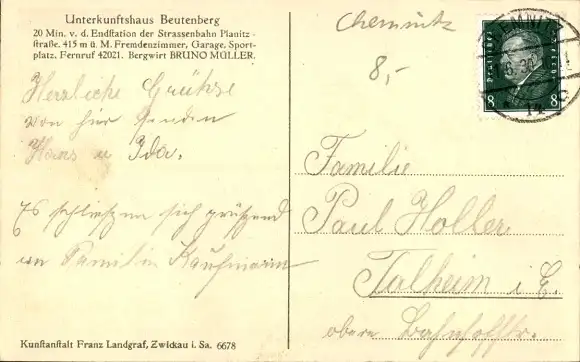 Unterkunftshaus Beutenberg
20 Min. v. d. Endstation der Strassenbahn Planitz-
straße. 415 m ü. M. Fremdenzimmer, Garage, Sport-
platz. Fernruf 42021. Bergwirt BRUNO MÜLLER.
Herzliche Grühse
von hir senden
Hans u Ida.
Es schliessen sich grüssend
an Familie Kaufmann
Kunstanstalt Franz Landgraf, Zwickau i. Sa. 6678
Chemnitz
8,-
CHEMNITZ
8 8
Familie
Paul Holler
Talheim i. E.
obere Bahnhofstr.